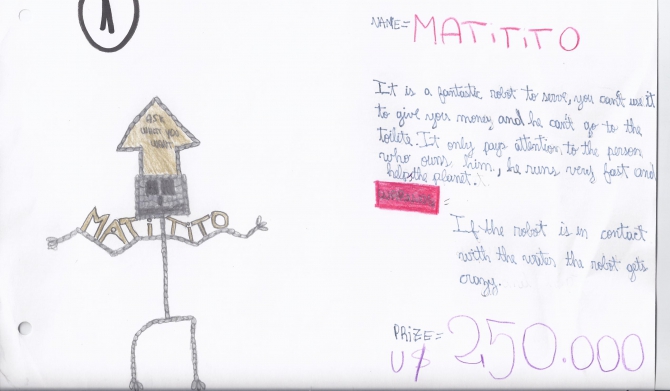 1
NAME= MATiTiTO
ASK
WHAT YOU
WANT
MATiTiTO
It is a fantastic robot to serve, you can't use it
to give you money and he can't go to the
toilets. It only pays attention to the person
who owns him, he runs very fast and
helps the planet.
=
If the robot is in contact
with the water the robot gets
crazy.
PRiZE=
U$ 250.000